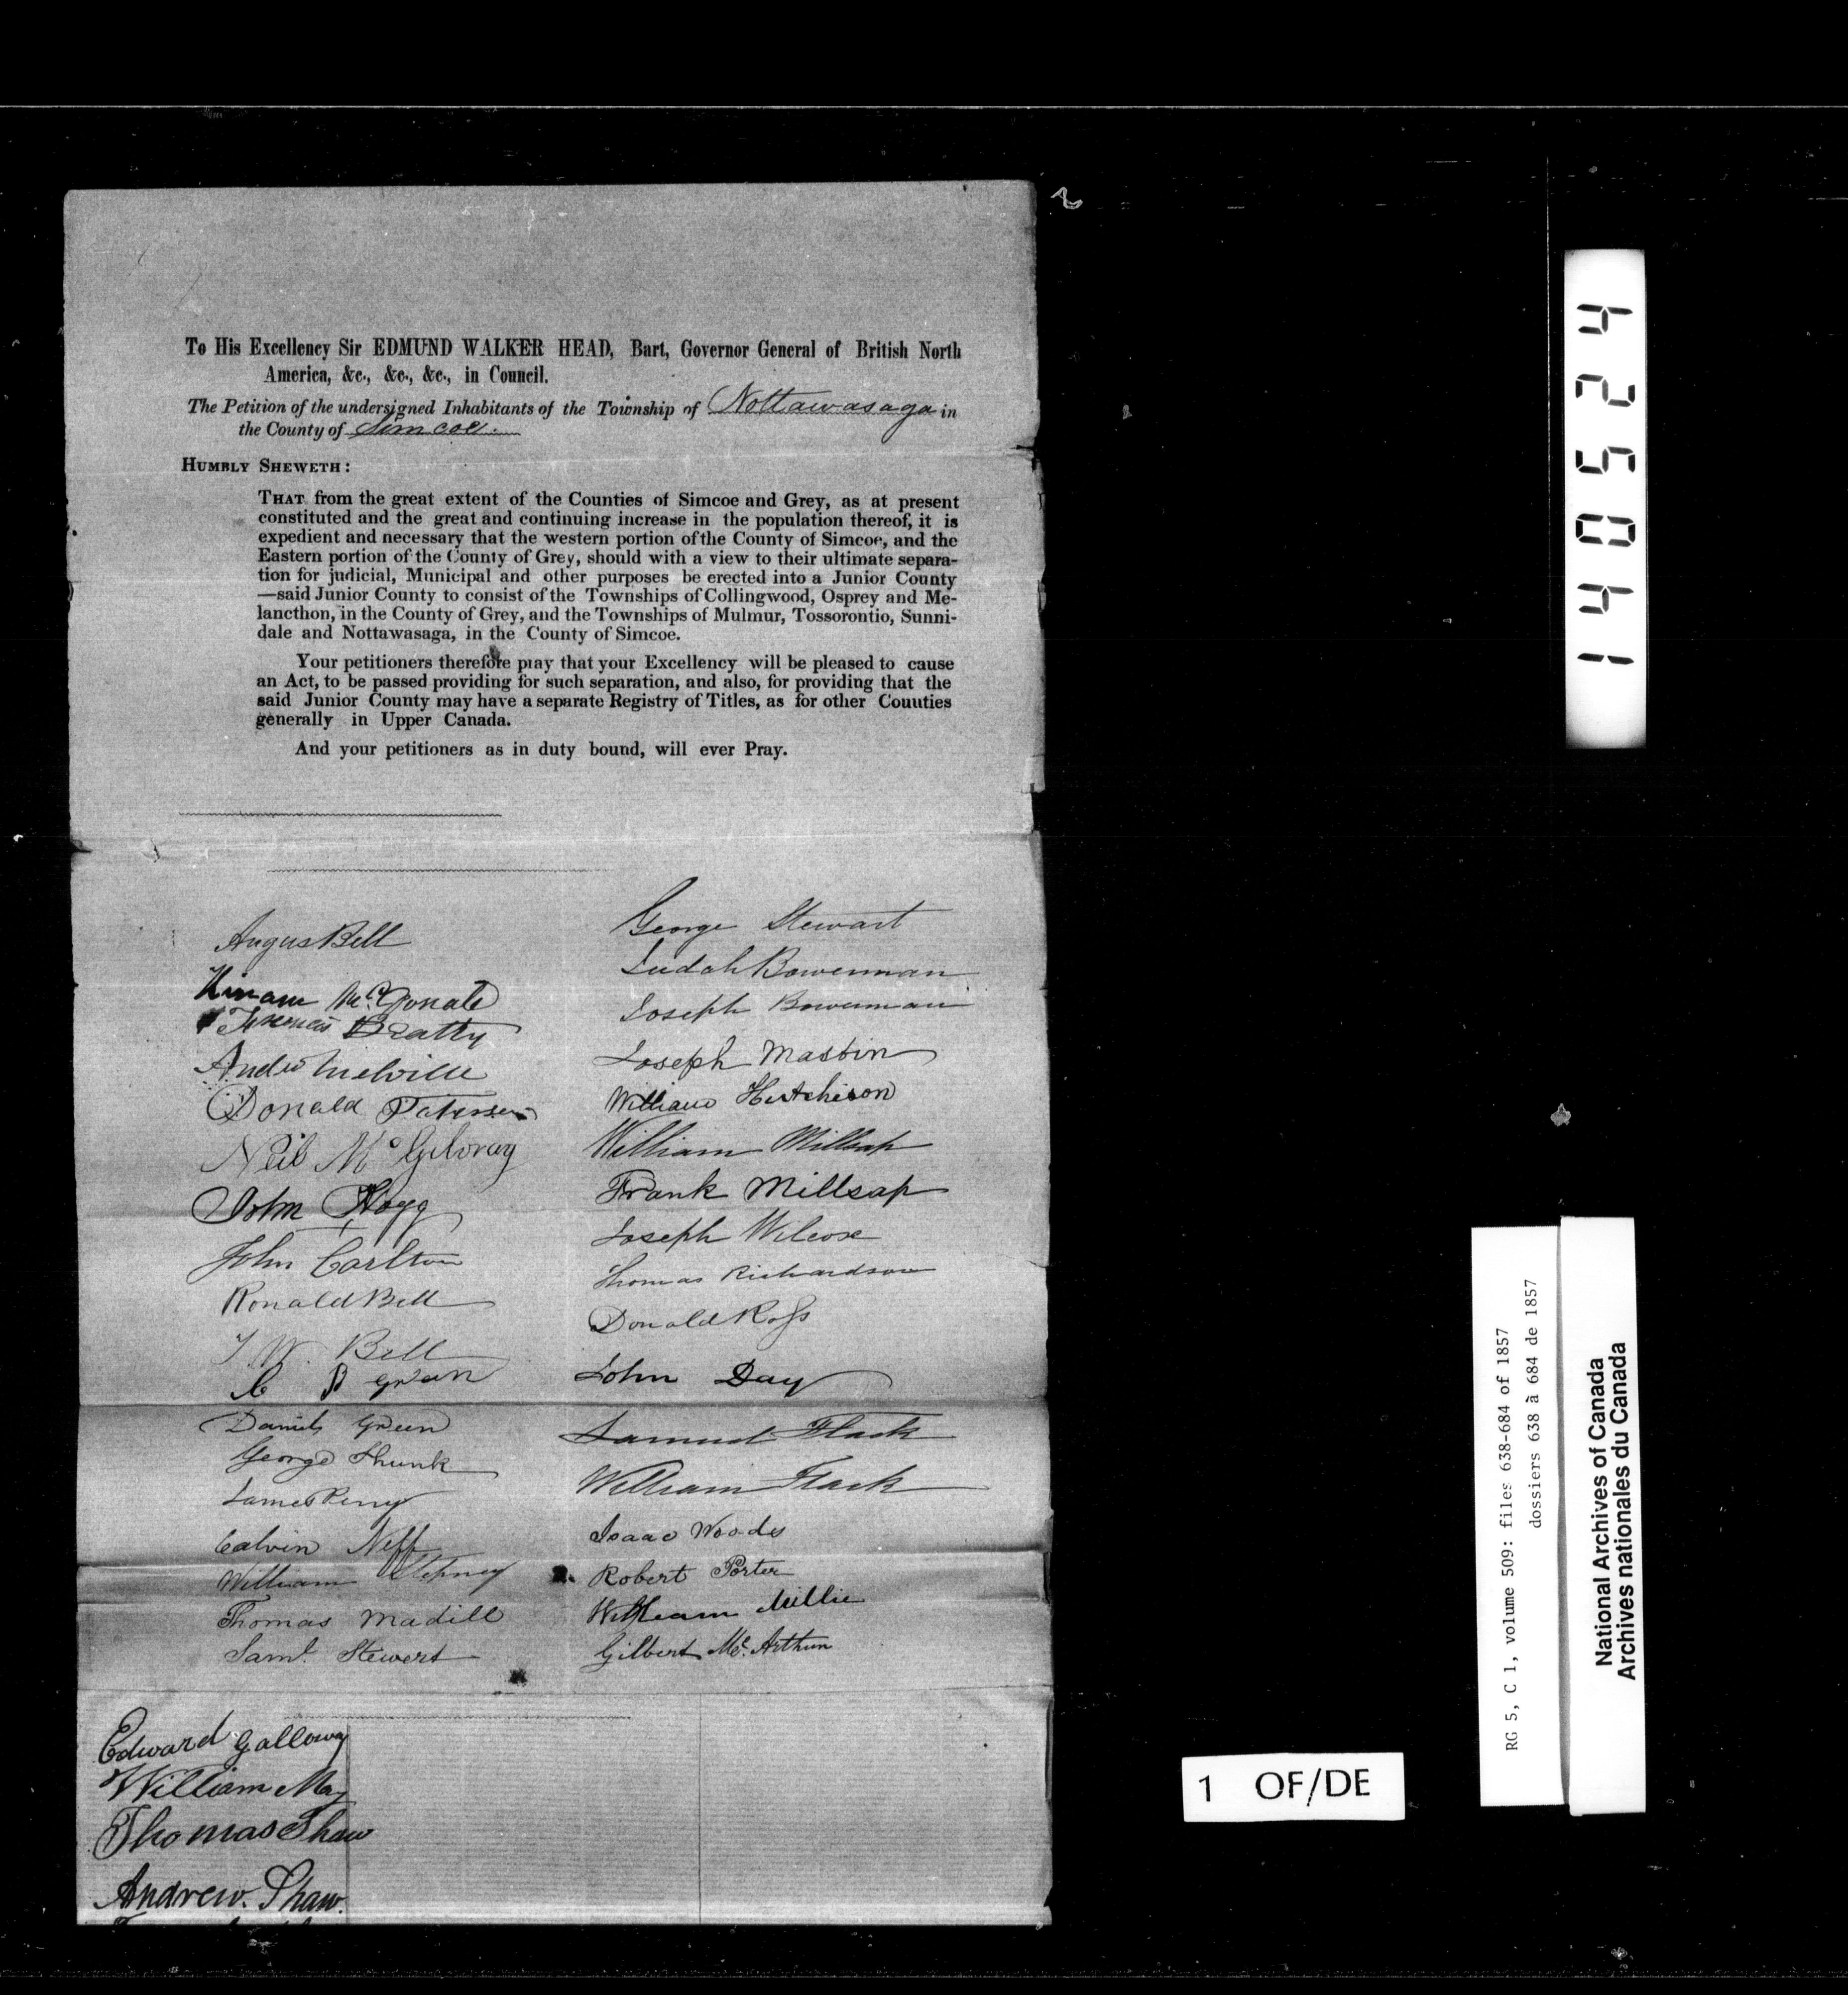 To His Excellency Sir EDMUND WALKER HEAD, Bart, Governor General of British North
America, &c., &c., &c., in Council.
The Petition of the undersigned Inhabitants of the Township of Nottawasaga in
the County of Simcoe.
HUMBLY SHEWETH:
THAT from the great extent of the Counties of Simcoe and Grey, as at present
constituted and the great and continuing increase in the population thereof, it is
expedient and necessary that the western portion of the County of Simcoe, and the
Eastern portion of the County of Grey, should with a view to their ultimate separa-
tion for judicial, Municipal and other purposes be erected into a Junior County
—said Junior County to consist of the Townships of Collingwood, Osprey and Me-
lancthon, in the County of Grey, and the Townships of Mulmur, Tossorontio, Sunni-
dale and Nottawasaga, in the County of Simcoe.
Your petitioners therefore pray that your Excellency will be pleased to cause
an Act, to be passed providing for such separation, and also, for providing that the
said Junior County may have a separate Registry of Titles, as for other Couuties
generally in Upper Canada.
And your petitioners as in duty bound, will ever Pray.
Angus Bell
Thomas Beatty
Andw Melville
Donald Paterson
Neil McGilvray
John Hogg
John Carlton
Ronald Bell
T. W. Bell
C B Green
Daniel Green
George Shunk
James Perry
Calvin Neff
William Stepney
Thomas Madill
Saml. Stewert
George Stewart
Judah Bowerman
Joseph Bowerman
Joseph Mastin
William Hutchison
William Millsap
Frank Millsap
Joseph Wilcox
Thomas Richardson
Donald Ross
John Day
Samuel Flack
William Flack
Isaac Woods
Robert Porter
William Millie
Gilbert Mc. Arthur
Edward Galloway
William May
Thomas Shaw
Andrew. Shaw.
140524
1 OF/DE
RG 5, C 1, volume 509: files 638-684 of 1857
dossiers 638 à 684 de 1857
National Archives of Canada
Archives nationales du Canada